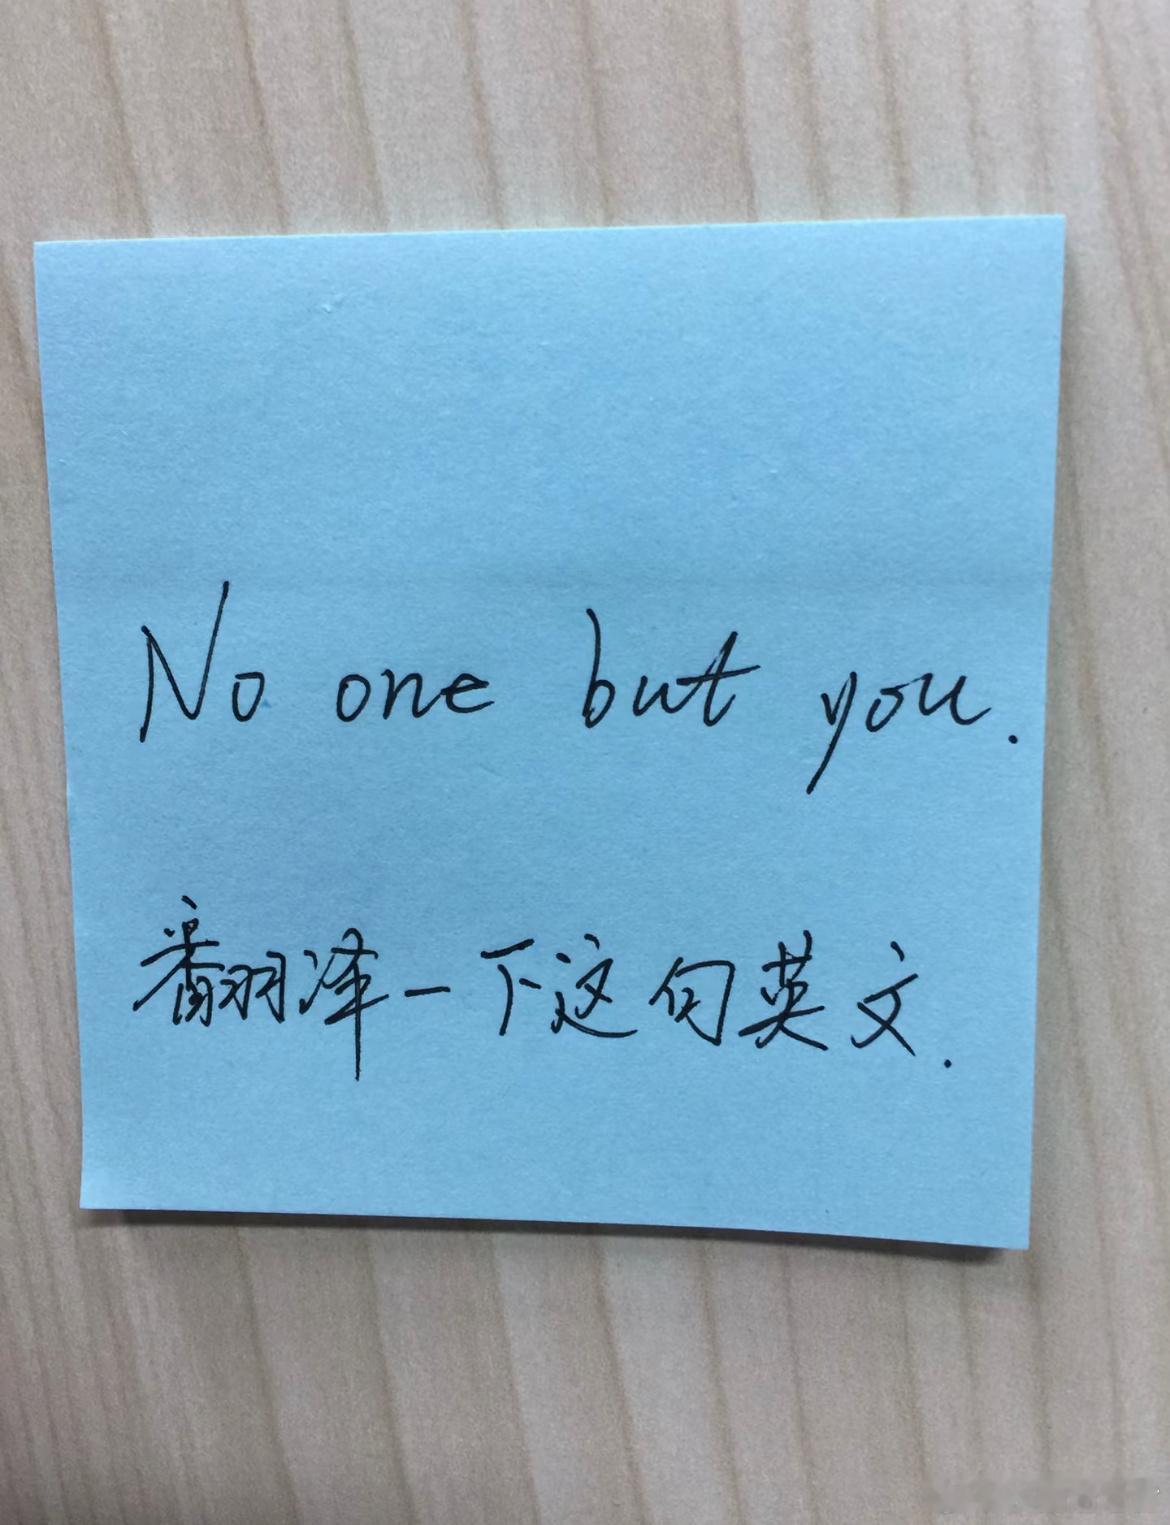 No one but you.
翻译一下这句英文.